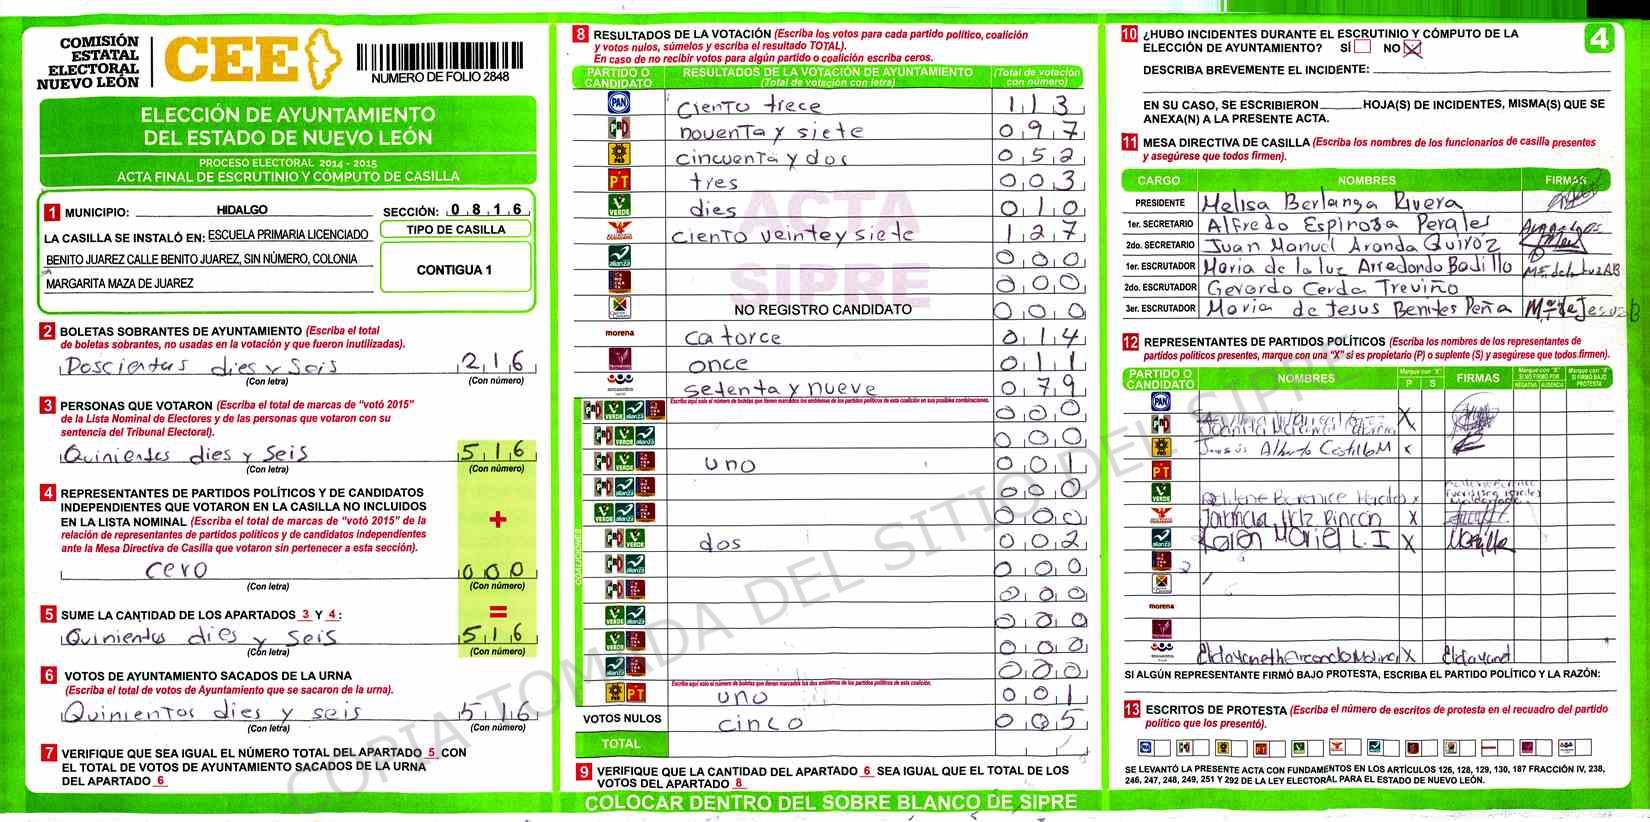 COMISIÓN
ESTATAL
ELECTORAL
NUEVO LEÓN
CEE
NUMERO DE FOLIO 2848
ELECCIÓN DE AYUNTAMIENTO
DEL ESTADO DE NUEVO LEÓN
PROCESO ELECTORAL 2014 - 2015
ACTA FINAL DE ESCRUTINIO Y CÓMPUTO DE CASILLA
1 MUNICIPIO: HIDALGO SECCIÓN: 0 8 1 6
LA CASILLA SE INSTALÓ EN: ESCUELA PRIMARIA LICENCIADO
BENITO JUAREZ CALLE BENITO JUAREZ, SIN NÚMERO, COLONIA
MARGARITA MAZA DE JUAREZ
TIPO DE CASILLA
CONTIGUA 1
2 BOLETAS SOBRANTES DE AYUNTAMIENTO (Escriba el total
de boletas sobrantes, no usadas en la votación y que fueron inutilizadas).
Doscientas dies y seis 2 1 6
(Con letra) (Con número)
3 PERSONAS QUE VOTARON (Escriba el total de marcas de "votó 2015"
de la Lista Nominal de Electores y de las personas que votaron con su
sentencia del Tribunal Electoral).
Quinientos dies y seis 5 1 6
(Con letra) (Con número)
4 REPRESENTANTES DE PARTIDOS POLÍTICOS Y DE CANDIDATOS
INDEPENDIENTES QUE VOTARON EN LA CASILLA NO INCLUIDOS
EN LA LISTA NOMINAL (Escriba el total de marcas de "votó 2015" de la
relación de representantes de partidos políticos y de candidatos independientes
ante la Mesa Directiva de Casilla que votaron sin pertenecer a esta sección).
+
cero 0 0 0
(Con letra) (Con número)
5 SUME LA CANTIDAD DE LOS APARTADOS 3 Y 4: =
Quinientos dies y seis 5 1 6
(Con letra) (Con número)
6 VOTOS DE AYUNTAMIENTO SACADOS DE LA URNA
(Escriba el total de votos de Ayuntamiento que se sacaron de la urna).
Quinientos dies y seis 5 1 6
(Con letra) (Con número)
7 VERIFIQUE QUE SEA IGUAL EL NÚMERO TOTAL DEL APARTADO 5 CON
EL TOTAL DE VOTOS DE AYUNTAMIENTO SACADOS DE LA URNA
DEL APARTADO 6
8 RESULTADOS DE LA VOTACIÓN (Escriba los votos para cada partido político, coalición
y votos nulos, súmelos y escriba el resultado TOTAL).
En caso de no recibir votos para algún partido o coalición escriba ceros.
PARTIDO O CANDIDATO
RESULTADOS DE LA VOTACIÓN DE AYUNTAMIENTO
(Total de votación con letra)
(Total de votación con número)
PAN ciento trece 1 1 3
noventa y siete 0 9 7
PRD cincuenta y dos 0 5 2
PT tres 0 0 3
VERDE dies 0 1 0
ciento veinte y siete 1 2 7
alianza 0 0 0
0 0 0
NO REGISTRO CANDIDATO 0 0 0
morena catorce 0 1 4
once 0 1 1
setenta y nueve 0 7 9
0 0 0
0 0 0
uno 0 0 1
0 0 0
0 0 0
dos 0 0 2
0 0 0
0 0 0
0 0 0
0 0 0
0 0 0
PT uno 0 0 1
VOTOS NULOS cinco 0 0 5
TOTAL
ACTA
SIPRE
9 VERIFIQUE QUE LA CANTIDAD DEL APARTADO 6 SEA IGUAL QUE EL TOTAL DE LOS
VOTOS DEL APARTADO 8
COLOCAR DENTRO DEL SOBRE BLANCO DE SIPRE
COPIA TOMADA DEL SITIO DEL SIPRE
4
10 ¿HUBO INCIDENTES DURANTE EL ESCRUTINIO Y CÓMPUTO DE LA
ELECCIÓN DE AYUNTAMIENTO? SÍ NO X
DESCRIBA BREVEMENTE EL INCIDENTE:
EN SU CASO, SE ESCRIBIERON HOJA(S) DE INCIDENTES, MISMA(S) QUE SE
ANEXA(N) A LA PRESENTE ACTA.
11 MESA DIRECTIVA DE CASILLA (Escriba los nombres de los funcionarios de casilla presentes
y asegúrese que todos firmen).
CARGO NOMBRES FIRMAS
PRESIDENTE Melisa Berlanga Rivera
1er. SECRETARIO Alfredo Espinosa Perales
2do. SECRETARIO Juan Manuel Aranda Quiróz
1er. ESCRUTADOR Maria de la luz Arredondo Badillo
2do. ESCRUTADOR Gerardo Cerda Treviño
3er. ESCRUTADOR Maria de Jesus Benites Peña
12 REPRESENTANTES DE PARTIDOS POLÍTICOS (Escriba los nombres de los representantes de
partidos políticos presentes, marque con una "X" si es propietario (P) o suplente (S) y asegúrese que todos firmen).
PARTIDO O CANDIDATO
NOMBRES
P S
FIRMAS
PAN
X
PRD Jesús Alberto Castillo M x
PT
VERDE Berenice x
Rincón X
alianza Karen Mariel L. I X
morena
X
SI ALGÚN REPRESENTANTE FIRMÓ BAJO PROTESTA, ESCRIBA EL PARTIDO POLÍTICO Y LA RAZÓN:
13 ESCRITOS DE PROTESTA (Escriba el número de escritos de protesta en el recuadro del partido
político que los presentó).
SE LEVANTÓ LA PRESENTE ACTA CON FUNDAMENTOS EN LOS ARTÍCULOS 126, 128, 129, 130, 187 FRACCIÓN IV, 238,
246, 247, 248, 249, 251 Y 292 DE LA LEY ELECTORAL PARA EL ESTADO DE NUEVO LEÓN.